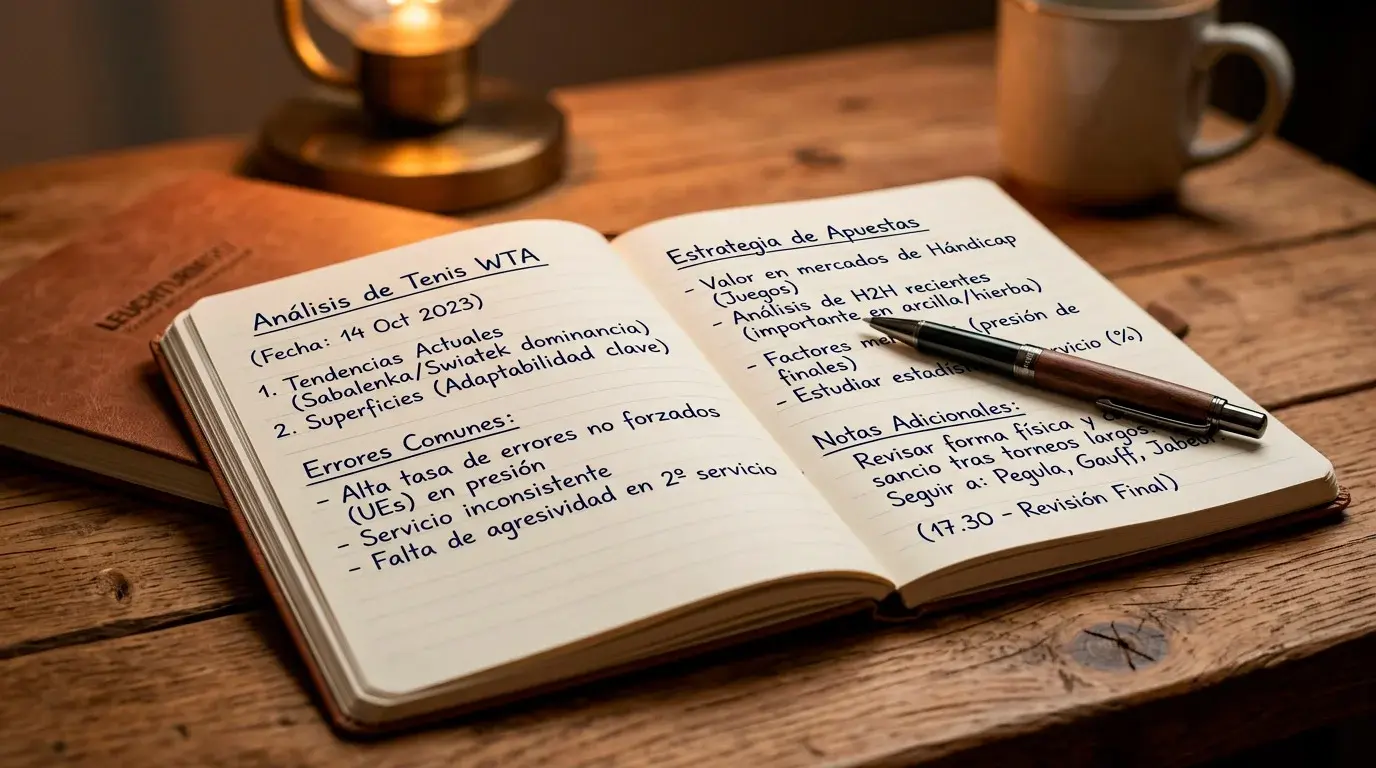 Análisis de Tenis WTA
(Fecha: 14 Oct 2023)
1. Tendencias Actuales
(Sabalenka/Swiatek dominancia)
2. Superficies (Adaptabilidad clave)
Errores Comunes:
- Alta tasa de errores no forzados
(UEs) en presión
- Servicio inconsistente
- Falta de agresividad en 2º servicio
Estrategia de Apuestas
- Valor en mercados de Hándicap
(Juegos)
- Análisis de H2H recientes
(importante en arcilla/hierba)
- Factores (presión de
finales)
- Estudiar servicio (%)
Notas Adicionales:
Revisar forma física y
sancio tras torneos largos.
Seguir a: Pegula, Gauff, Jabeur.
(17.30 - Revisión Final)